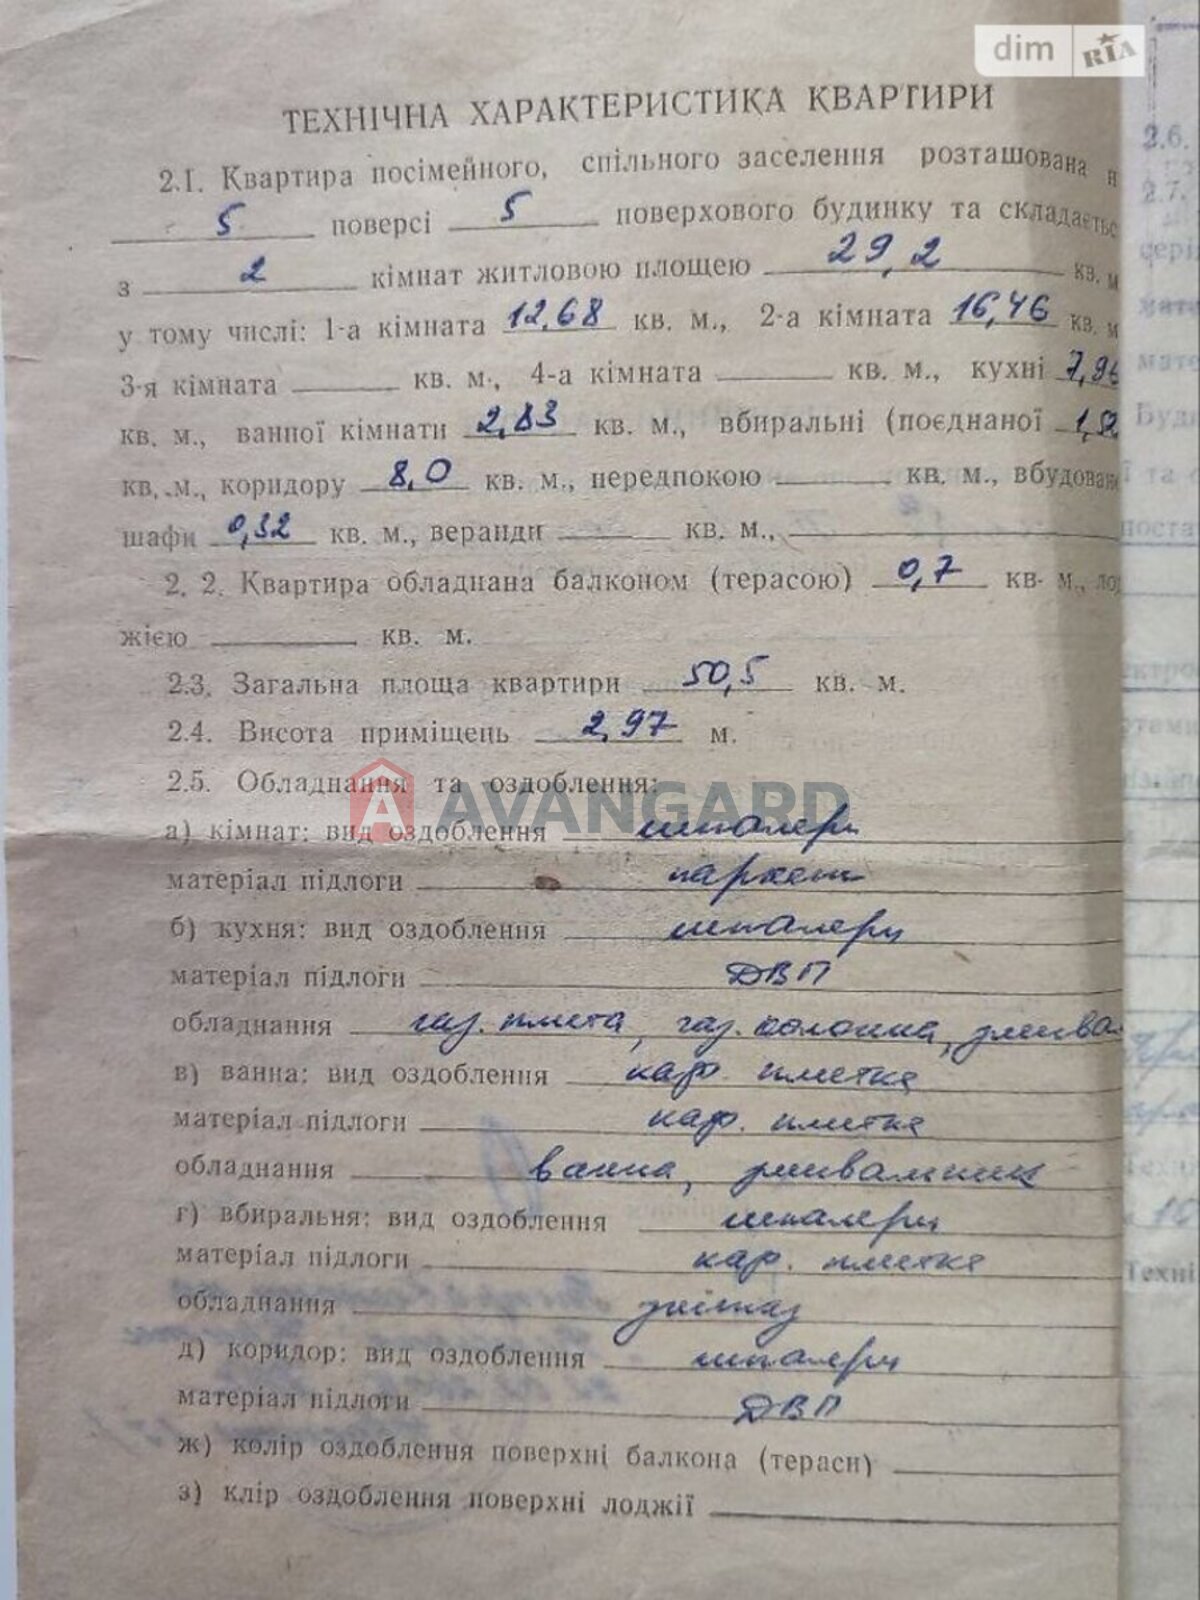 dim RIA
ТЕХНІЧНА ХАРАКТЕРИСТИКА КВАРТИРИ
2.1. Квартира посімейного, спільного заселення розташована н
5 поверсі 5 поверхового будинку та складаєтьс
з 2 кімнат житловою площею 29,2 кв. м
у тому числі: 1-а кімната 12,68 кв. м., 2-а кімната 16,46 кв. м
3-я кімната кв. м., 4-а кімната кв. м., кухні 7,96
кв. м., ванної кімнати 2,83 кв. м., вбиральні (поєднаної
кв. м., коридору 8,0 кв. м., передпокою кв. м., вбудовані
шафи 0,32 кв. м., веранди кв. м.,
2. 2. Квартира обладнана балконом (терасою) 0,7 кв. м., лод
жією кв. м.
2.3. Загальна площа квартири 50,5 кв. м.
2.4. Висота приміщень 2,97 м.
2.5. Обладнання та оздоблення:
AVANGARD
а) кімнат: вид оздоблення шпалери
матеріал підлоги паркет
б) кухня: вид оздоблення шпалери
матеріал підлоги ДВП
обладнання газ. плита, газ. колонка, умивал
в) ванна: вид оздоблення каф. плитка
матеріал підлоги каф. плитка
обладнання ванна, умивальник
г) вбиральня: вид оздоблення шпалери
матеріал підлоги каф. плитка
обладнання унітаз
д) коридор: вид оздоблення шпалери
матеріал підлоги ДВП
ж) колір оздоблення поверхні балкона (тераси)
з) клір оздоблення поверхні лоджії
2.6.
2.7.
серії
мате
Буди
поста
Техні